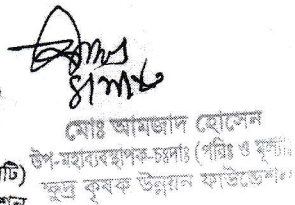 মোঃ আমজাদ হোসেন
উপ-মহাব্যবস্থাপক-চঃদাঃ (পরিঃ ও মূল্যাঃ
টি)
ক্ষুদ্র কৃষক উন্নয়ন ফাউন্ডেশন